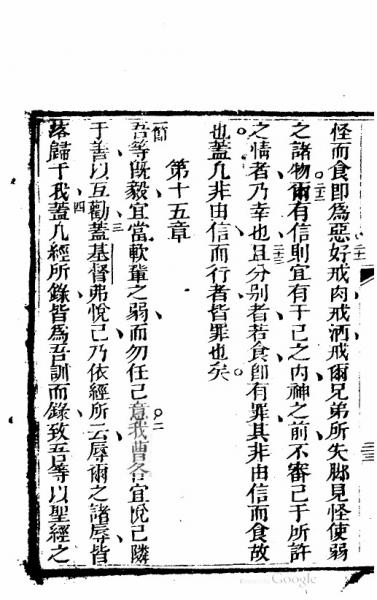 怪而食卽爲惡好戒肉戒酒戒爾兄弟所失脚見怪使弱
二十一
之諸物爾有信則宜有于己之內神之前不審己于所許
二十二
之情者乃幸也且分别者若食卽有罪其非由信而食故
二十三
也蓋凡非由信而行者皆罪也矣
第十五章
一節
吾等旣毅宜當軟輩之弱而勿任己意我曹各宜悅己隣
二
于善以互勸蓋基督弗悅己乃依經所云辱爾之諸辱皆
三
落歸于我蓋凡經所錄皆爲吾訓而錄致吾等以聖經之
四
Google